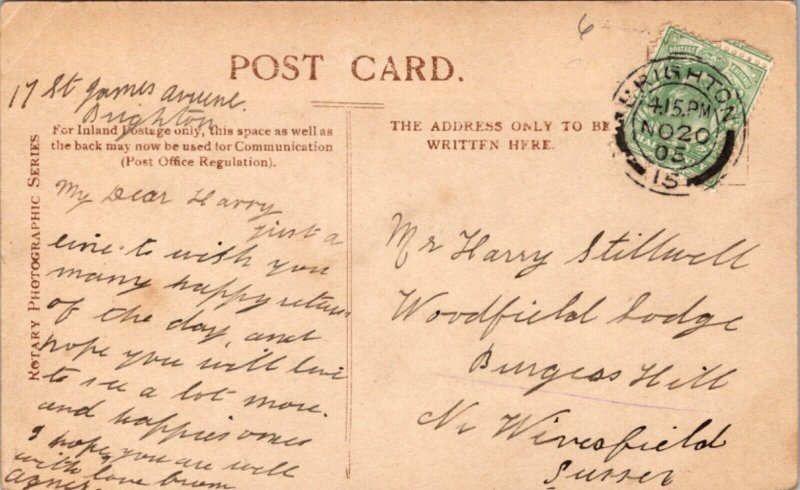 POST CARD.
17 St James avenue.
Brighton
For Inland Postage only, this space as well as
the back may now be used for Communication
(Post Office Regulation).
ROTARY PHOTOGRAPHIC SERIES
My Dear Harry
just a
line to wish you
many happy returns
of the day, and
hope you will live
to see a lot more.
and happies ones
I hope you are well
with love from
Agnes
THE ADDRESS ONLY TO BE
WRITTEN HERE.
6
POSTAGE
BRIGHTON
4.15.PM
NO 20
03
15
Mr Harry Stillwell
Woodfield Lodge
Burgess Hill
Nr Wivesfield
Sussex